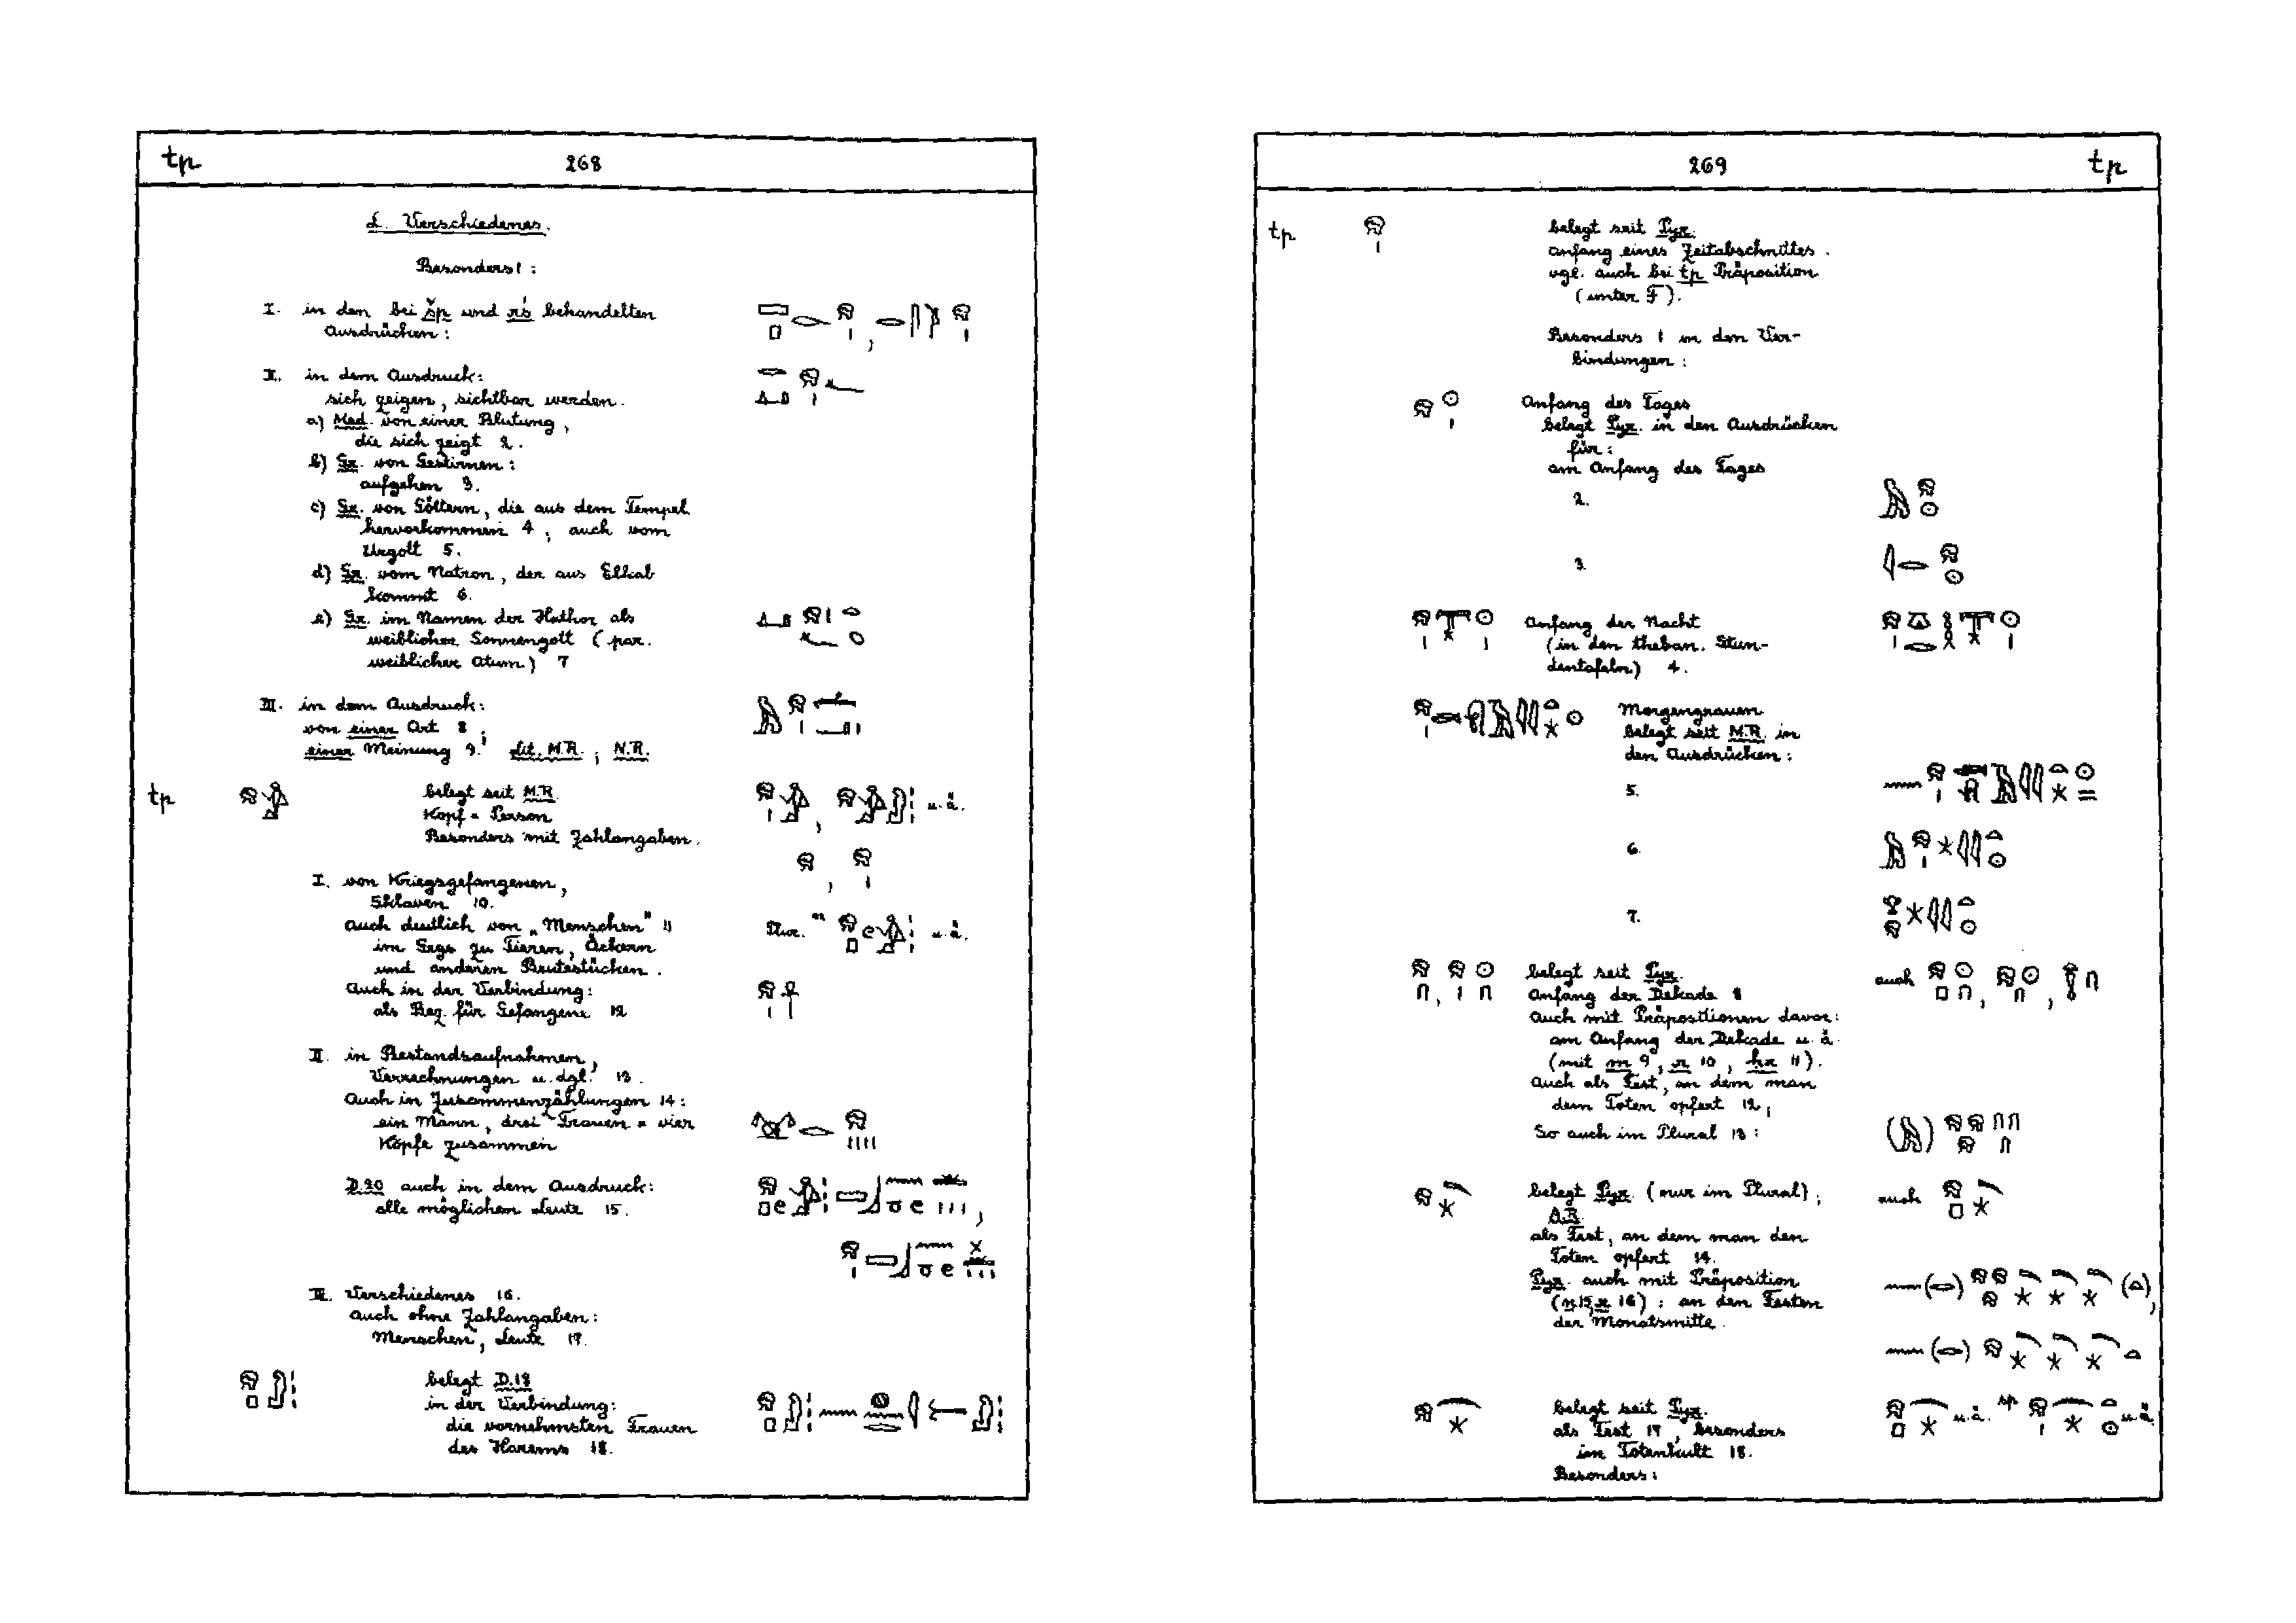 tp 268
L. Verschiedenes.
Besonders 1:
I. in den bei šp und rś behandelten
Ausdrücken:
II. in dem Ausdruck:
sich zeigen, sichtbar werden.
a) Med. von einer Blutung,
die sich zeigt 2.
b) Gr. von Gestirnen:
aufgehen 3.
c) Gr. von Göttern, die aus dem Tempel
hervorkommen 4, auch vom
Urgott 5.
d) Gr. vom Natron, der aus Elkab
kommt 6.
e) Gr. im Namen der Hathor als
weiblicher Sonnengott (par.
weiblicher Atum) 7
III. in dem Ausdruck:
von einer Art 8,
einer Meinung 9. Lit. M.R., N.R.
tp belegt seit M.R.
Kopf = Person u. ä.
Besonders mit Zahlangaben.
I. von Kriegsgefangenen,
Sklaven 10.
Auch deutlich von „Menschen" 11 Plur. u. ä.
im Ggs zu Tieren, Äckern
und anderen Beutestücken.
Auch in der Verbindung:
als Bez. für Gefangene 12
II. in Bestandsaufnahmen,
Verrechnungen u. dgl. 13.
Auch in Zusammenzählungen 14:
ein Mann, drei Frauen = vier
Köpfe zusammen
D.20 auch in dem Ausdruck:
alle möglichen Leute 15.
III. Verschiedenes 16.
Auch ohne Zahlangaben:
Menschen, Leute 17.
belegt D.18
in der Verbindung:
die vornehmsten Frauen
des Harems 18.
269 tp
tp belegt seit Pyr.
Anfang eines Zeitabschnittes.
vgl. auch bei tp Präposition
(unter F).
Besonders 1 in den Ver-
bindungen:
Anfang des Tages
belegt Pyr. in den Ausdrücken
für:
am Anfang des Tages
2.
3.
Anfang der Nacht
(in den theban. Stun-
dentafeln) 4.
Morgengrauen
belegt seit M.R. in
den Ausdrücken:
5.
6.
7.
belegt seit Pyr. auch
Anfang der Dekade 8
Auch mit Präpositionen davor:
am Anfang der Dekade u. ä.
(mit m 9, r 10, ḥr 11).
Auch als Fest, an dem man
dem Toten opfert 12,
So auch im Plural 13:
belegt Pyr. (nur im Plural), auch
A.R.
als Fest, an dem man den
Toten opfert 14.
Pyr. auch mit Präposition
(n 15, r 16): an den Festen
der Monatsmitte.
belegt seit Pyr. u. ä. sp u. ä.
als Fest 17, besonders
im Totenkult 18.
Besonders: